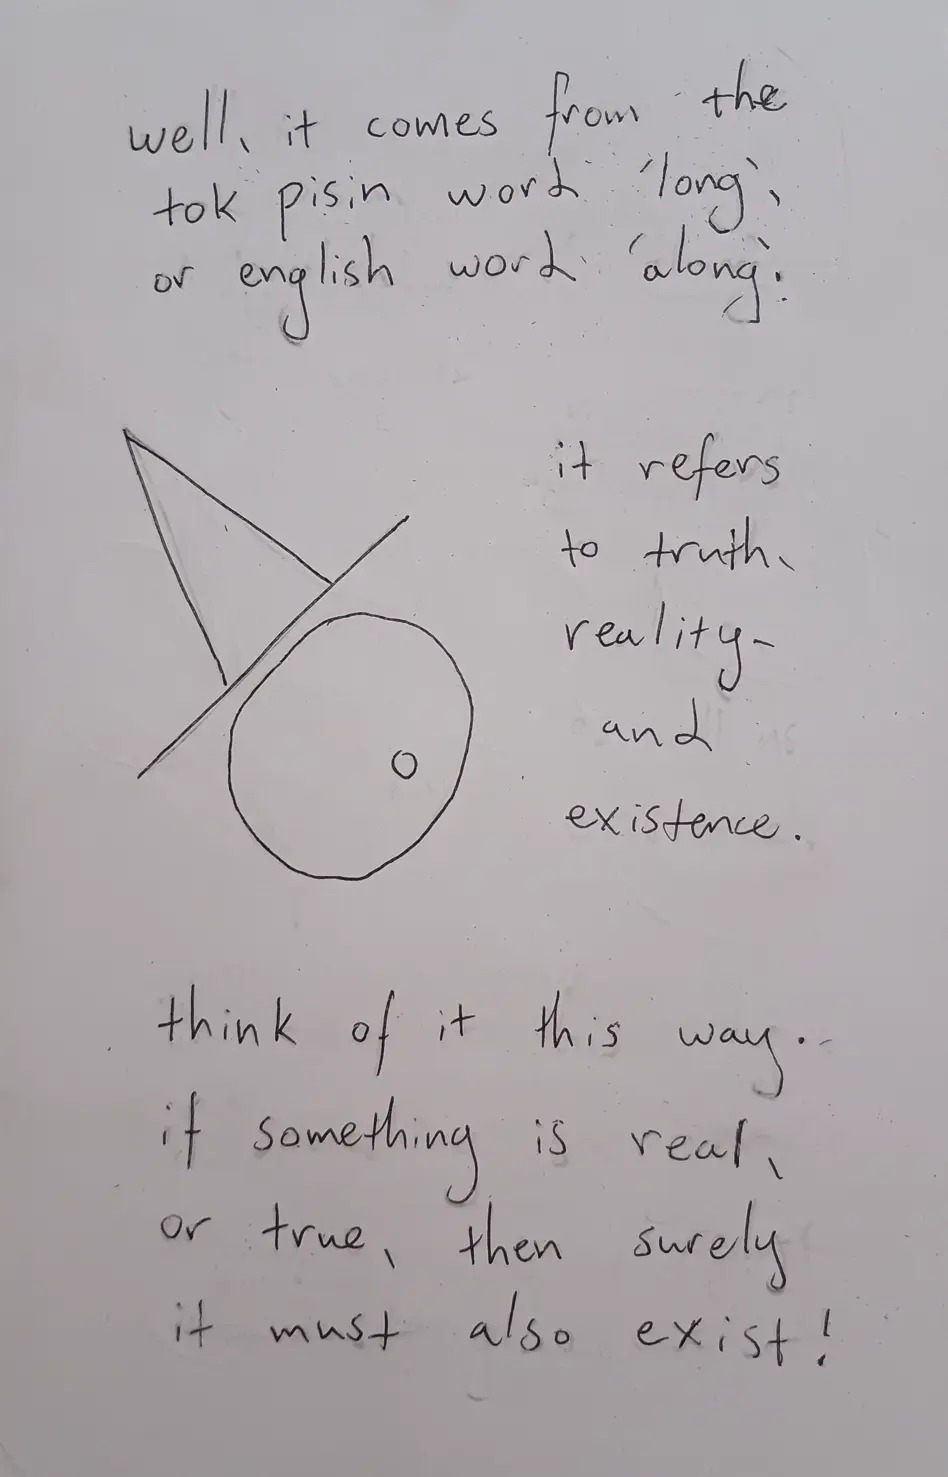 well, it comes from the
tok pisin word 'long',
or english word 'along'.
it refers
to truth,
reality-
and
existence.
think of it this way..
if something is real,
or true, then surely
it must also exist!